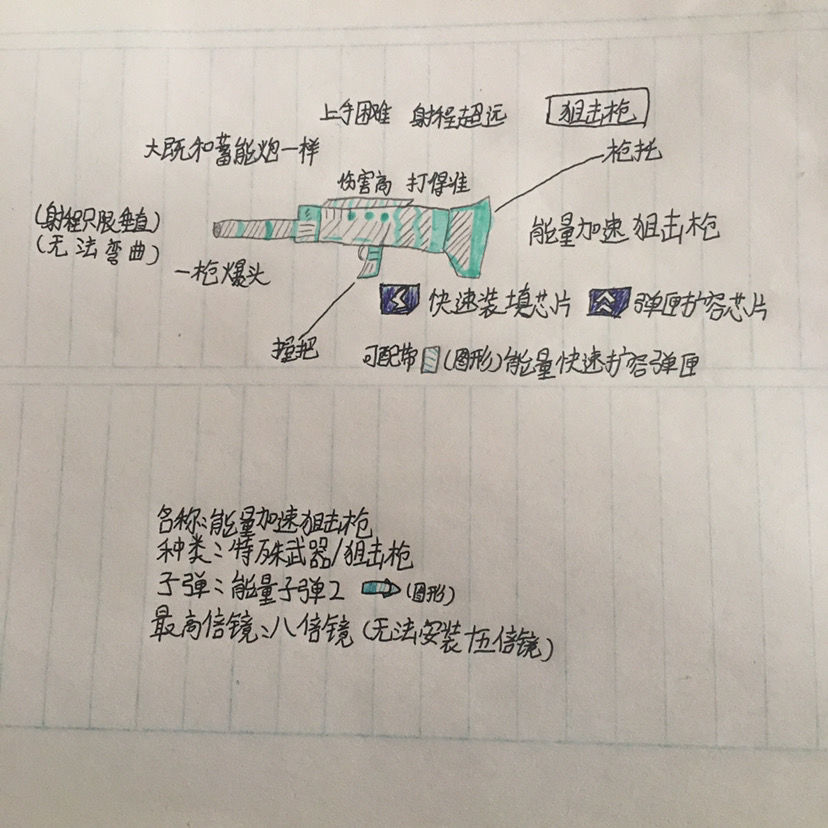 上手困难 射程超远 狙击枪
大既和蓄能炮一样
枪托
伤害高 打得准
(射程只限垂直)
(无法弯曲)
能量加速狙击枪
一枪爆头
快速装填芯片 弹匣扩容芯片
握把
可配带 (图形)能量快速扩容弹匣
名称:能量加速狙击枪
种类:特殊武器/狙击枪
子弹:能量子弹2 (图形)
最高倍镜:八倍镜(无法安装十五倍镜)